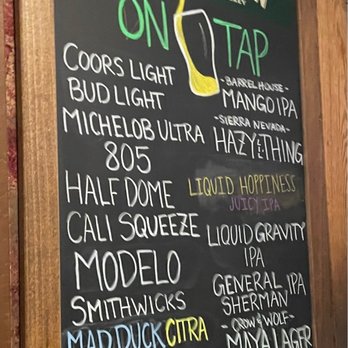 ON TAP
COORS LIGHT
BUD LIGHT
MICHELOB ULTRA
805
HALF DOME
CALI SQUEEZE
MODELO
SMITHWICKS
MAD DUCK CITRA
-BARREL HOUSE-
MANGO IPA
-SIERRA NEVADA-
HAZY LITTLE THING
LIQUID HOPPINESS
JUICY IPA
LIQUID GRAVITY
IPA
GENERAL SHERMAN IPA
-CROW & WOLF-
MAYA LAGER